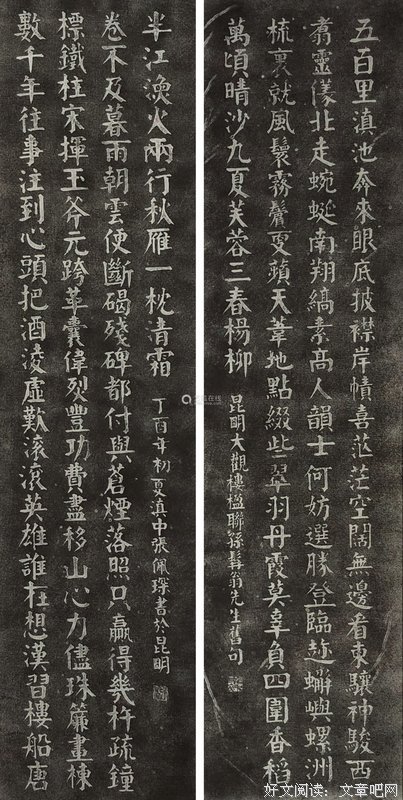 五百里滇池奔來眼底披襟岸幘喜茫茫空闊無邊看東驤神駿西
翥靈儀北走蜿蜒南翔縞素高人韻士何妨選勝登臨趁蠏嶼螺洲
梳裹就風鬟霧鬢更蘋天葦地點綴些翠羽丹霞莫辜負四圍香稻
萬頃晴沙九夏芙蓉三春楊柳
昆明大觀樓楹聯孫髯翁先生舊句
數千年往事注到心頭把酒淩虛歎滾滾英雄誰在想漢習樓船唐
標鐵柱宋揮玉斧元跨革囊偉烈豐功費盡移山心力儘珠簾畫棟
卷不及暮雨朝雲便斷碣殘碑都付與蒼煙落照只贏得幾杵疏鐘
半江漁火兩行秋雁一枕清霜
丁酉年初夏滇中張佩琛書於昆明
好文阅读：文章吧网